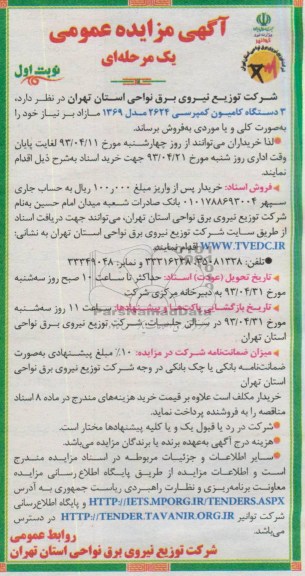 آگهی مزایده عمومی
یک مرحله‌ای
نوبت اول
شرکت توزیع نیروی برق نواحی استان تهران در نظر دارد،
۳ دستگاه کامیون کمپرسی ۲۶۲۴ مدل ۱۳۶۹ مازاد بر نیاز خود را
به‌صورت کلی و یا موردی به‌فروش برساند.
●لذا خریداران می‌توانند از روز چهارشنبه مورخ ۹۳/۰۴/۱۱ لغایت پایان
وقت اداری روز شنبه مورخ ۹۳/۰۴/۲۱ جهت خرید اسناد به‌شرح ذیل اقدام
نمایند.
●فروش اسناد: خریدار پس از واریز مبلغ ۱۰۰٫۰۰۰ ریال به حساب جاری
سپهر ۰۱۰۱۷۸۸۶۹۳۰۰۴ بانک صادرات شعبه میدان امام حسین به‌نام
شرکت توزیع نیروی برق نواحی استان تهران، می‌توانند جهت دریافت اسناد
از طریق سایت شرکت توزیع نیروی برق نواحی استان تهران به نشانی:
WWW.TVEDC.IR اقدام نمایند.
●تلفن: ۳۵۰۸۱۳۳۸-۳۳۳۱۶۲۴۸ و نمابر: ۳۳۳۴۹۰۴۸
●تاریخ تحویل (عودت) اسناد: حداکثر تا ساعت ۱۰ صبح روز سه‌شنبه
مورخ ۹۳/۰۴/۳۱ به دبیرخانه مرکزی شرکت
●تاریخ بازگشایی پاکت‌های پیشنهادها: ساعت ۱۱ روز سه‌شنبه
مورخ ۹۳/۰۴/۳۱ در سالن جلسات شرکت توزیع نیروی برق نواحی
استان تهران
●میزان ضمانت‌نامه شرکت در مزایده: ۱۰٪ مبلغ پیشنهادی به‌صورت
ضمانت‌نامه بانکی یا چک بانکی در وجه شرکت توزیع نیروی برق نواحی
استان تهران
خریدار مکلف است علاوه بر قیمت خرید هزینه‌های مندرج در ماده ۸ اسناد
مناقصه را به فروشنده پرداخت نماید.
●شرکت در رد یا قبول یک و یا کلیه پیشنهادها مختار است.
●هزینه درج آگهی به‌عهده برنده یا برندگان مزایده می‌باشد.
●سایر اطلاعات و جزئیات مربوطه در اسناد مزایده مندرج
است و اطلاعات مزایده از طریق پایگاه اطلاع رسانی مزایده
معاونت برنامه‌ریزی و نظارت راهبردی ریاست جمهوری به آدرس
HTTP://IETS.MPORG.IR/TENDERS.ASPX و پایگاه اطلاع‌رسانی
شرکت توانیر HTTP://TENDER.TAVANIR.ORG.IR در دسترس
می‌باشد.
روابط عمومی
شرکت توزیع نیروی برق نواحی استان تهران